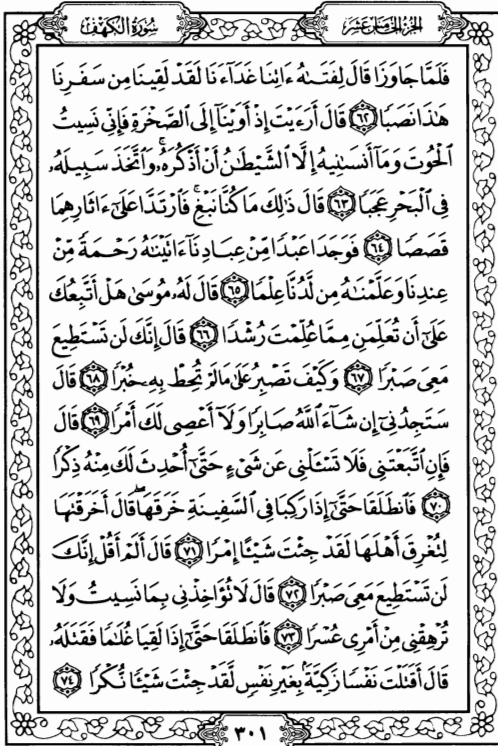 سُورَةُ الكَهْفِ
الجُزْءُ الخَامِسَ عَشَرَ
فَلَمَّا جَاوَزَا قَالَ لِفَتَىٰهُ ءَاتِنَا غَدَآءَنَا لَقَدْ لَقِينَا مِن سَفَرِنَا
هَٰذَا نَصَبًا ٦٢ قَالَ أَرَءَيْتَ إِذْ أَوَيْنَآ إِلَى ٱلصَّخْرَةِ فَإِنِّى نَسِيتُ
ٱلْحُوتَ وَمَآ أَنسَىٰنِيهُ إِلَّا ٱلشَّيْطَٰنُ أَنْ أَذْكُرَهُۥ ۚ وَٱتَّخَذَ سَبِيلَهُۥ
فِى ٱلْبَحْرِ عَجَبًا ٦٣ قَالَ ذَٰلِكَ مَا كُنَّا نَبْغِ ۚ فَٱرْتَدَّا عَلَىٰٓ ءَاثَارِهِمَا
قَصَصًا ٦٤ فَوَجَدَا عَبْدًا مِّنْ عِبَادِنَآ ءَاتَيْنَٰهُ رَحْمَةً مِّنْ
عِندِنَا وَعَلَّمْنَٰهُ مِن لَّدُنَّا عِلْمًا ٦٥ قَالَ لَهُۥ مُوسَىٰ هَلْ أَتَّبِعُكَ
عَلَىٰٓ أَن تُعَلِّمَنِ مِمَّا عُلِّمْتَ رُشْدًا ٦٦ قَالَ إِنَّكَ لَن تَسْتَطِيعَ
مَعِىَ صَبْرًا ٦٧ وَكَيْفَ تَصْبِرُ عَلَىٰ مَا لَمْ تُحِطْ بِهِۦ خُبْرًا ٦٨ قَالَ
سَتَجِدُنِىٓ إِن شَآءَ ٱللَّهُ صَابِرًا وَلَآ أَعْصِى لَكَ أَمْرًا ٦٩ قَالَ
فَإِنِ ٱتَّبَعْتَنِى فَلَا تَسْـَٔلْنِى عَن شَىْءٍ حَتَّىٰٓ أُحْدِثَ لَكَ مِنْهُ ذِكْرًا
٧٠ فَٱنطَلَقَا حَتَّىٰٓ إِذَا رَكِبَا فِى ٱلسَّفِينَةِ خَرَقَهَا ۖ قَالَ أَخَرَقْتَهَا
لِتُغْرِقَ أَهْلَهَا لَقَدْ جِئْتَ شَيْـًٔا إِمْرًا ٧١ قَالَ أَلَمْ أَقُلْ إِنَّكَ
لَن تَسْتَطِيعَ مَعِىَ صَبْرًا ٧٢ قَالَ لَا تُؤَاخِذْنِى بِمَا نَسِيتُ وَلَا
تُرْهِقْنِى مِنْ أَمْرِى عُسْرًا ٧٣ فَٱنطَلَقَا حَتَّىٰٓ إِذَا لَقِيَا غُلَٰمًا فَقَتَلَهُۥ
قَالَ أَقَتَلْتَ نَفْسًا زَكِيَّةًۢ بِغَيْرِ نَفْسٍ لَّقَدْ جِئْتَ شَيْـًٔا نُّكْرًا ٧٤
٣٠١